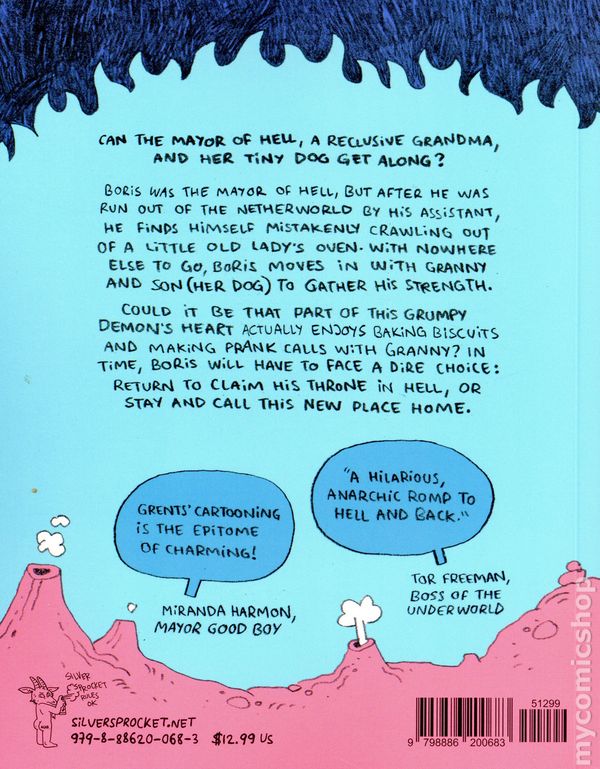 CAN THE MAYOR OF HELL, A RECLUSIVE GRANDMA,
AND HER TINY DOG GET ALONG?
BORIS WAS THE MAYOR OF HELL, BUT AFTER HE WAS
RUN OUT OF THE NETHERWORLD BY HIS ASSISTANT,
HE FINDS HIMSELF MISTAKENLY CRAWLING OUT
OF A LITTLE OLD LADY'S OVEN. WITH NOWHERE
ELSE TO GO, BORIS MOVES IN WITH GRANNY
AND SON (HER DOG) TO GATHER HIS STRENGTH.
COULD IT BE THAT PART OF THIS GRUMPY
DEMON'S HEART ACTUALLY ENJOYS BAKING BISCUITS
AND MAKING PRANK CALLS WITH GRANNY? IN
TIME, BORIS WILL HAVE TO FACE A DIRE CHOICE:
RETURN TO CLAIM HIS THRONE IN HELL, OR
STAY AND CALL THIS NEW PLACE HOME.
GRENTS' CARTOONING
IS THE EPITOME
OF CHARMING!
MIRANDA HARMON,
MAYOR GOOD BOY
"A HILARIOUS,
ANARCHIC ROMP TO
HELL AND BACK."
TOR FREEMAN,
BOSS OF THE
UNDERWORLD
SILVER
SPROCKET
RULES
OK
SILVERSPROCKET.NET
979-8-88620-068-3 $12.99 US
51299
9 798886 200683
mycomicshop